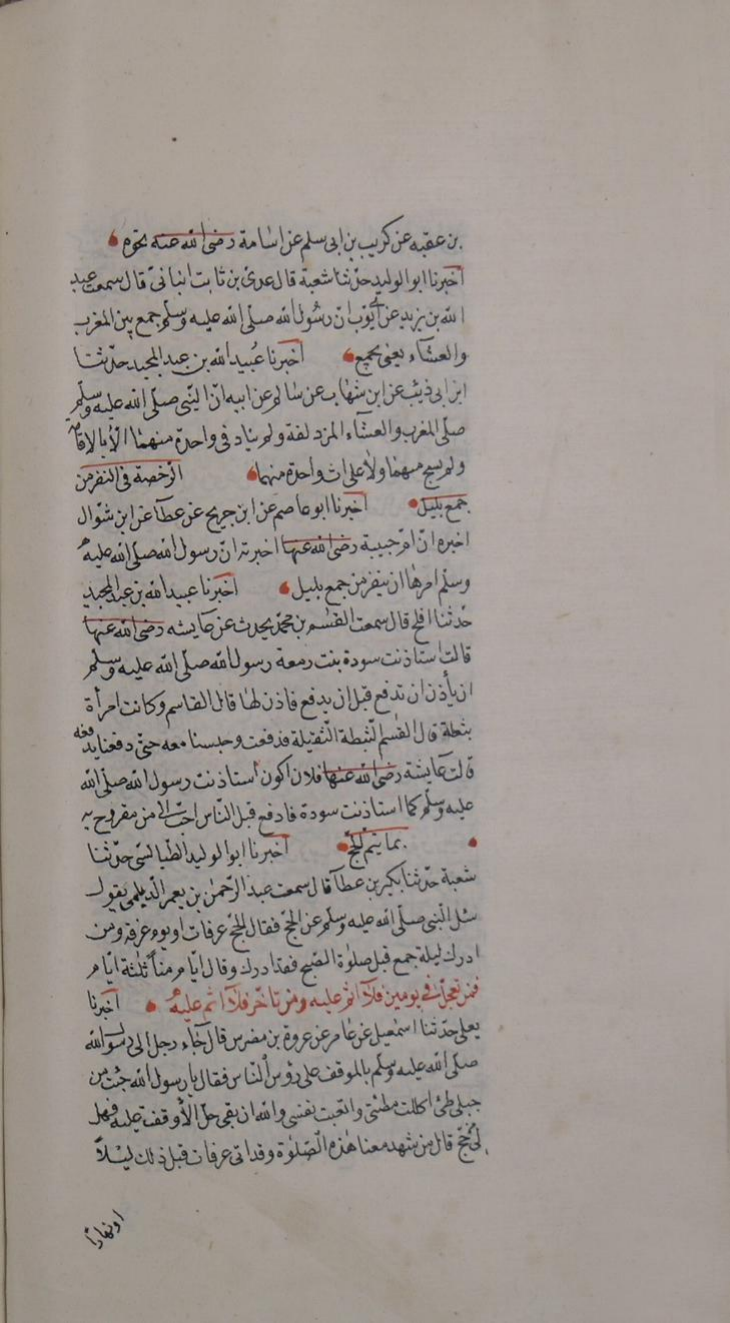 بن عقبه عن كريب بن ابي سلم عن اسامة رضى الله عنه نحوه
اخبرنا ابو الوليد حدثنا شعبة قال عدى بن ثابت انبانى قال سمعت عبد
الله بن يزيد عن ابى ايوب ان رسول الله صلى الله عليه وسلم جمع بين المغرب
والعشاء يعنى بجمع اخبرنا عبيد الله بن عبد المجيد حدثنا
ابن ابى ذيب عن ابن شهاب عن سالم عن ابيه ان النبى صلى الله عليه وسلم
صلى المغرب والعشاء المزدلفة ولم يناد فى واحدة منهما الا بالاقامة
ولم يسبح منهما ولا على اثر واحدة منهما الرخصة فى النفر من
جمع بليل اخبرنا ابو عاصم عن ابن جريج عن عطا عن ابن شوال
اخبره ان ام حبيبة رضى الله عنها اخبرته ان رسول الله صلى الله عليه
وسلم امرها ان ينفر من جمع بليل اخبرنا عبيد الله بن عبد المجيد
حدثنا افلح قال سمعت القسم بن محمد يحدث عن عايشه رضى الله عنها
قالت استاذنت سودة بنت زمعة رسول الله صلى الله عليه وسلم
ان يأذن ان تدفع قبل ان يدفع فاذن لها قال القاسم وكانت امرأة
ثبطة قال القسم الثبطة الثقيلة فدفعت وحبسنا معه حتى دفعنا بدفعه
قالت عايشة رضى الله عنها فلان اكون استاذنت رسول الله صلى الله
عليه وسلم كما استاذنت سودة فادفع قبل الناس احب الى من مفروح به
بما يتم الحج اخبرنا ابو الوليد الطيالسى حدثنا
شعبة حدثنا بكير بن عطا قال سمعت عبد الرحمن بن يعمر الديلمى يقول
سئل النبى صلى الله عليه وسلم عن الحج فقال الحج عرفات او يوم عرفة ومن
ادرك ليلة جمع قبل صلوة الصبح فقد ادرك وقال ايام منا ثلثة ايام
فمن تعجل فى يومين فلا اثم عليه ومن تأخر فلا اثم عليه اخبرنا
يعلى حدثنا اسمعيل عن عامر عن عروة بن مضرس قال جاء رجل الى رسول الله
صلى الله عليه وسلم بالموقف على رؤس الناس فقال يا رسول الله جئت من
جبلى طئ اكللت مطئتى واتعبت نفسى والله ان بقى حل الا وقفت عليه فهل
لى حج قال من شهد معنا هذه الصلوة وقد اتى عرفات قبل ذلك ليلاً
او نهاراً